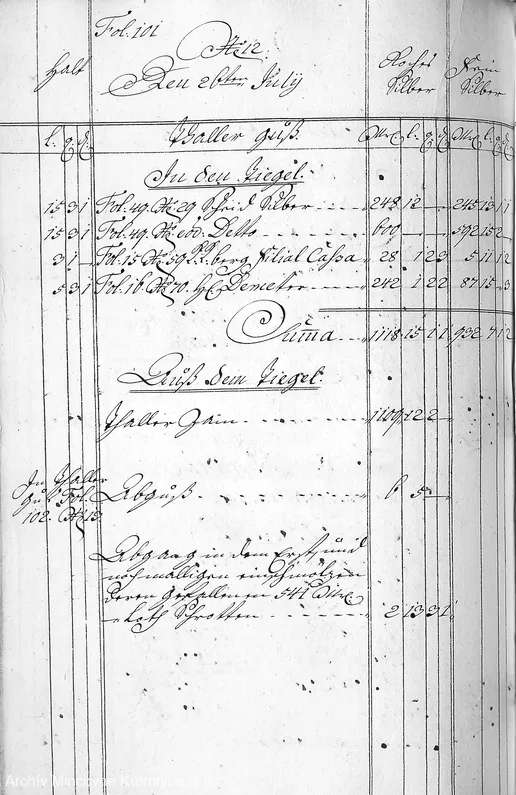 Fol. 101
No. 12.
Den 26ten July
Halt
Roches Silber
Fein Silber
l. q. d. Thaller Guß. Mr. l. q. d. Mr. l. q. d.
In den Tiegel.
15 3 1 Fol. 49. No. 29 Scheid Silber 248 12 — — 245 13 1 1
15 3 1 Fol. 49. No. Detto 600 — — — 592 15 2 —
3 1 — Fol. 15 No. 592 berg Filial Cassa 28 1 2 3 5 11 1 2
5 3 1 Fol. 16 No. 70. H. Demeter 242 1 2 2 87 15 — 3
Summa 1118 15 1 1 932 7 1 2
Auß dem Tiegel.
Thaller Zain 1109 12 2 —
In Thaller
Guß Fol. Abguß 6 5 —
102. No. 13.
Abgang in dem Erst und
nochmalligen einschmölzen
deren gefallenen 541 Mr.
— Loth Schrotten 2 13 3 1
Archív Mincovne Kremnica